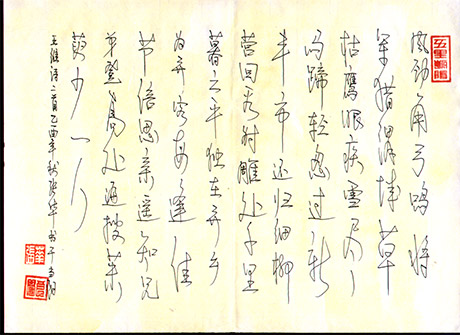 风劲角弓鸣将
军猎渭城草
枯鹰眼疾雪尽
马蹄轻忽过新
丰市还归细柳
营回看射雕处千里
暮云平独在异乡
为异客每逢佳
节倍思亲遥知兄
弟登高处遍插茱
萸少一人
王维诗二首乙酉年秋张华书于